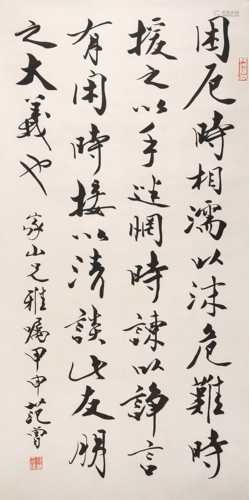 困厄時相濡以沫危難時
援之以手迷惘時諫以諍言
有闲時接以清談此友朋
之大義也
家山兄雅嘱甲申范曾